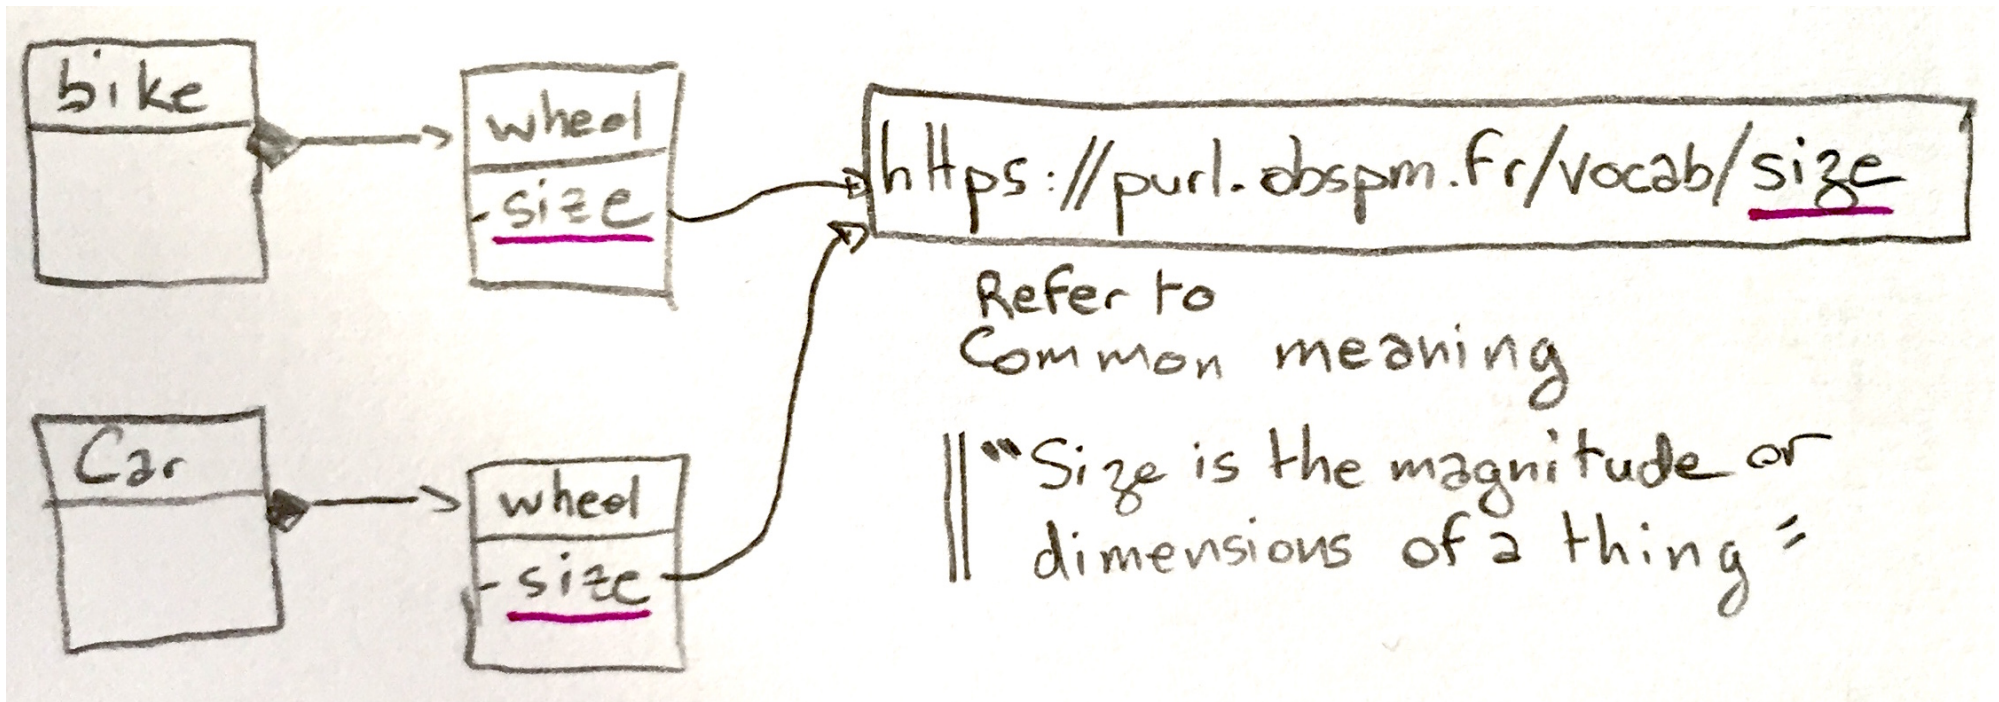 bike
wheel
- size
https://purl.obspm.fr/vocab/size
Refer to
Common meaning
"Size is the magnitude or
dimensions of a thing"
Car
wheel
- size